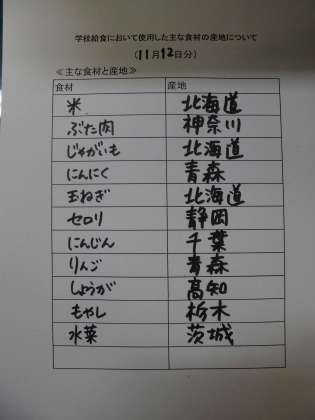 学校給食において使用した主な食材の産地について
（11月12日分）
≪主な食材と産地≫
食材 産地
米 北海道
ぶた肉 神奈川
じゃがいも 北海道
にんにく 青森
玉ねぎ 北海道
セロリ 静岡
にんじん 千葉
りんご 青森
しょうが 高知
もやし 栃木
水菜 茨城